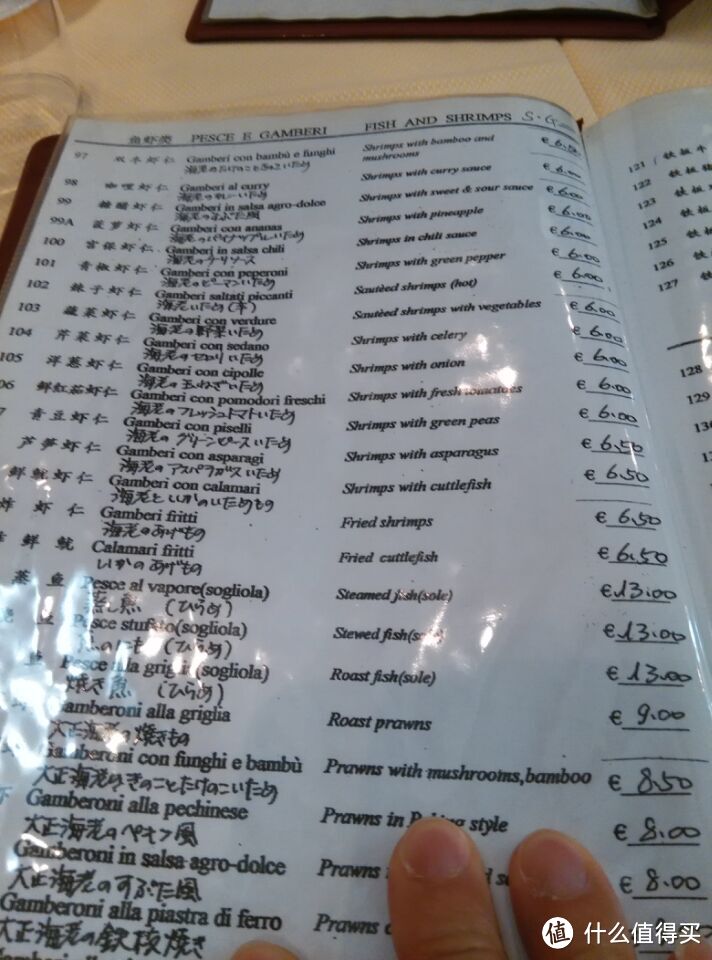 鱼虾类 PESCE E GAMBERI FISH AND SHRIMPS
97 双冬虾仁 Gamberi con bambù e funghi Shrimps with bamboo and mushrooms € 6.50
海老のたけのこときのこいため
98 咖喱虾仁 Gamberi al curry Shrimps with curry sauce € 6.00
海老のカレーいため
99 糖醋虾仁 Gamberi in salsa agro-dolce Shrimps with sweet & sour sauce € 6.00
海老のすぶた風
99A 菠萝虾仁 Gamberi con ananas Shrimps with pineapple € 6.00
海老のパイナップルいため
100 宫保虾仁 Gamberi in salsa chili Shrimps in chili sauce € 6.00
海老のチリソース
101 青椒虾仁 Gamberi con peperoni Shrimps with green pepper € 6.00
海老のピーマンいため
102 辣子虾仁 Gamberi saltati piccanti Sautèed shrimps (hot) € 6.00
海老いため(辛)
103 蔬菜虾仁 Gamberi con verdure Sautèed shrimps with vegetables € 6.00
海老の野菜いため
104 芹菜虾仁 Gamberi con sedano Shrimps with celery € 6.00
海老のセロリいため
105 洋葱虾仁 Gamberi con cipolle Shrimps with onion € 6.00
海老の玉ねぎいため
06 鲜红茄虾仁 Gamberi con pomodori freschi Shrimps with fresh tomatoes € 6.00
海老のフレッシュトマトいため
7 青豆虾仁 Gamberi con piselli Shrimps with green peas € 6.00
海老のグリーンピースいため
芦笋虾仁 Gamberi con asparagi Shrimps with asparagus € 6.50
海老のアスパラガスいため
鲜鱿虾仁 Gamberi con calamari Shrimps with cuttlefish € 6.50
海老といかのいためもの
炸虾仁 Gamberi fritti Fried shrimps € 6.50
海老のあげもの
鲜鱿 Calamari fritti Fried cuttlefish € 6.50
いかのあげもの
蒸鱼 Pesce al vapore(sogliola) Steamed fish(sole) € 13.00
蒸し魚 (ひらめ)
Pesce stufato(sogliola) Stewed fish(sole) € 13.00
魚のにもの (ひらめ)
Pesce alla griglia(sogliola) Roast fish(sole) € 13.00
焼き魚 (ひらめ)
Gamberoni alla griglia Roast prawns € 9.00
大正海老の焼きもの
Gamberoni con funghi e bambù Prawns with mushrooms,bamboo € 8.50
大正海老のきのことたけのこいため
Gamberoni alla pechinese Prawns in style € 8.00
大正海老のペキン風
Gamberoni in salsa agro-dolce Prawns € 8.00
大正海老のすぶた風
Gamberoni alla piastra di ferro Prawns
大正海老の鉄板焼き
121 铁板牛
122 铁板
123 铁
124 铁
125 铁
126 铁
127
128
129
值 什么值得买